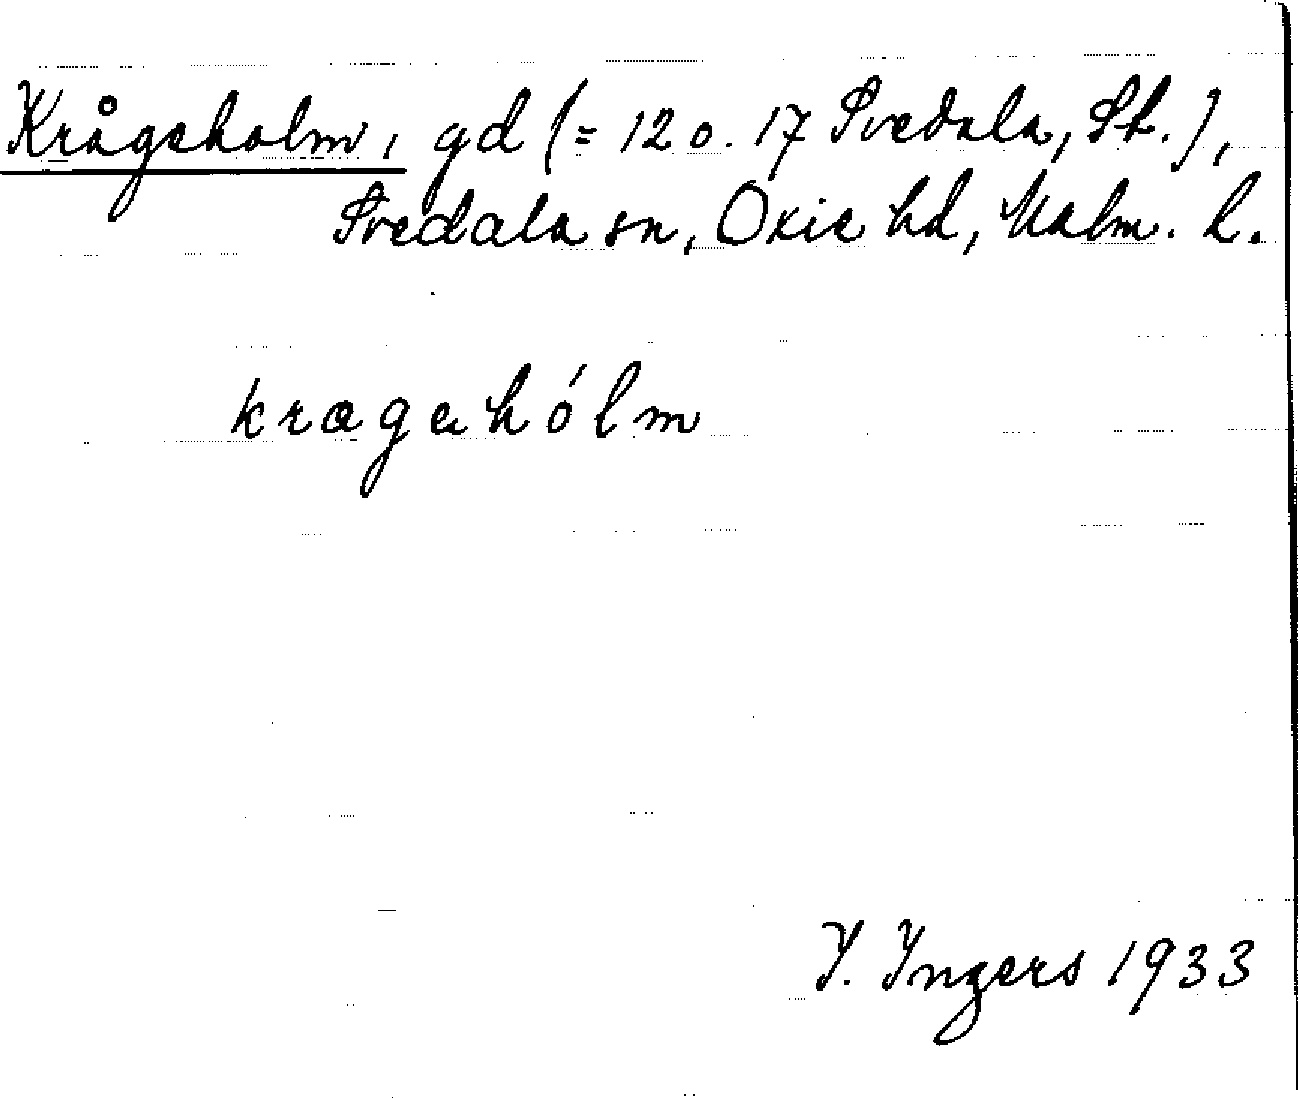 Krågeholm, gd (= 12 o. 17 Svedala, St.),
Svedala sn, Oxie hd, Malm. l.
kragehólm
I. Ingers 1933